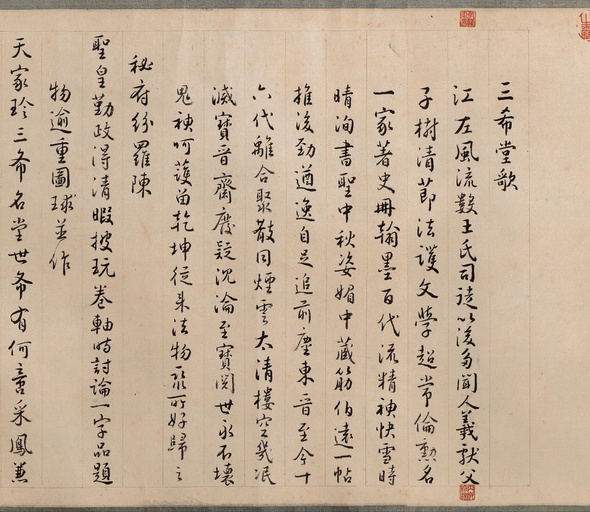 三希堂歌
江左風流數王氏司徒以後多聞人羲獻父
子樹清節法護文學超常倫勲名
一家著史冊翰墨百代流精神快雪時
晴洵書聖中秋姿媚中藏筋伯遠一帖
推後勁遒逸自足追前塵東晉至今十
六代離合聚散同煙雲太清樓空幾泯
滅寶晉齋廢疑沈淪至寶閱世永不壞
鬼神呵護留乾坤從來法物聚所好歸之
秘府紛羅陳
聖皇勤政得清暇披玩卷軸時討論一字品題
物逾重圖球並作
天家珍三希名堂世希有何啻采鳳兼